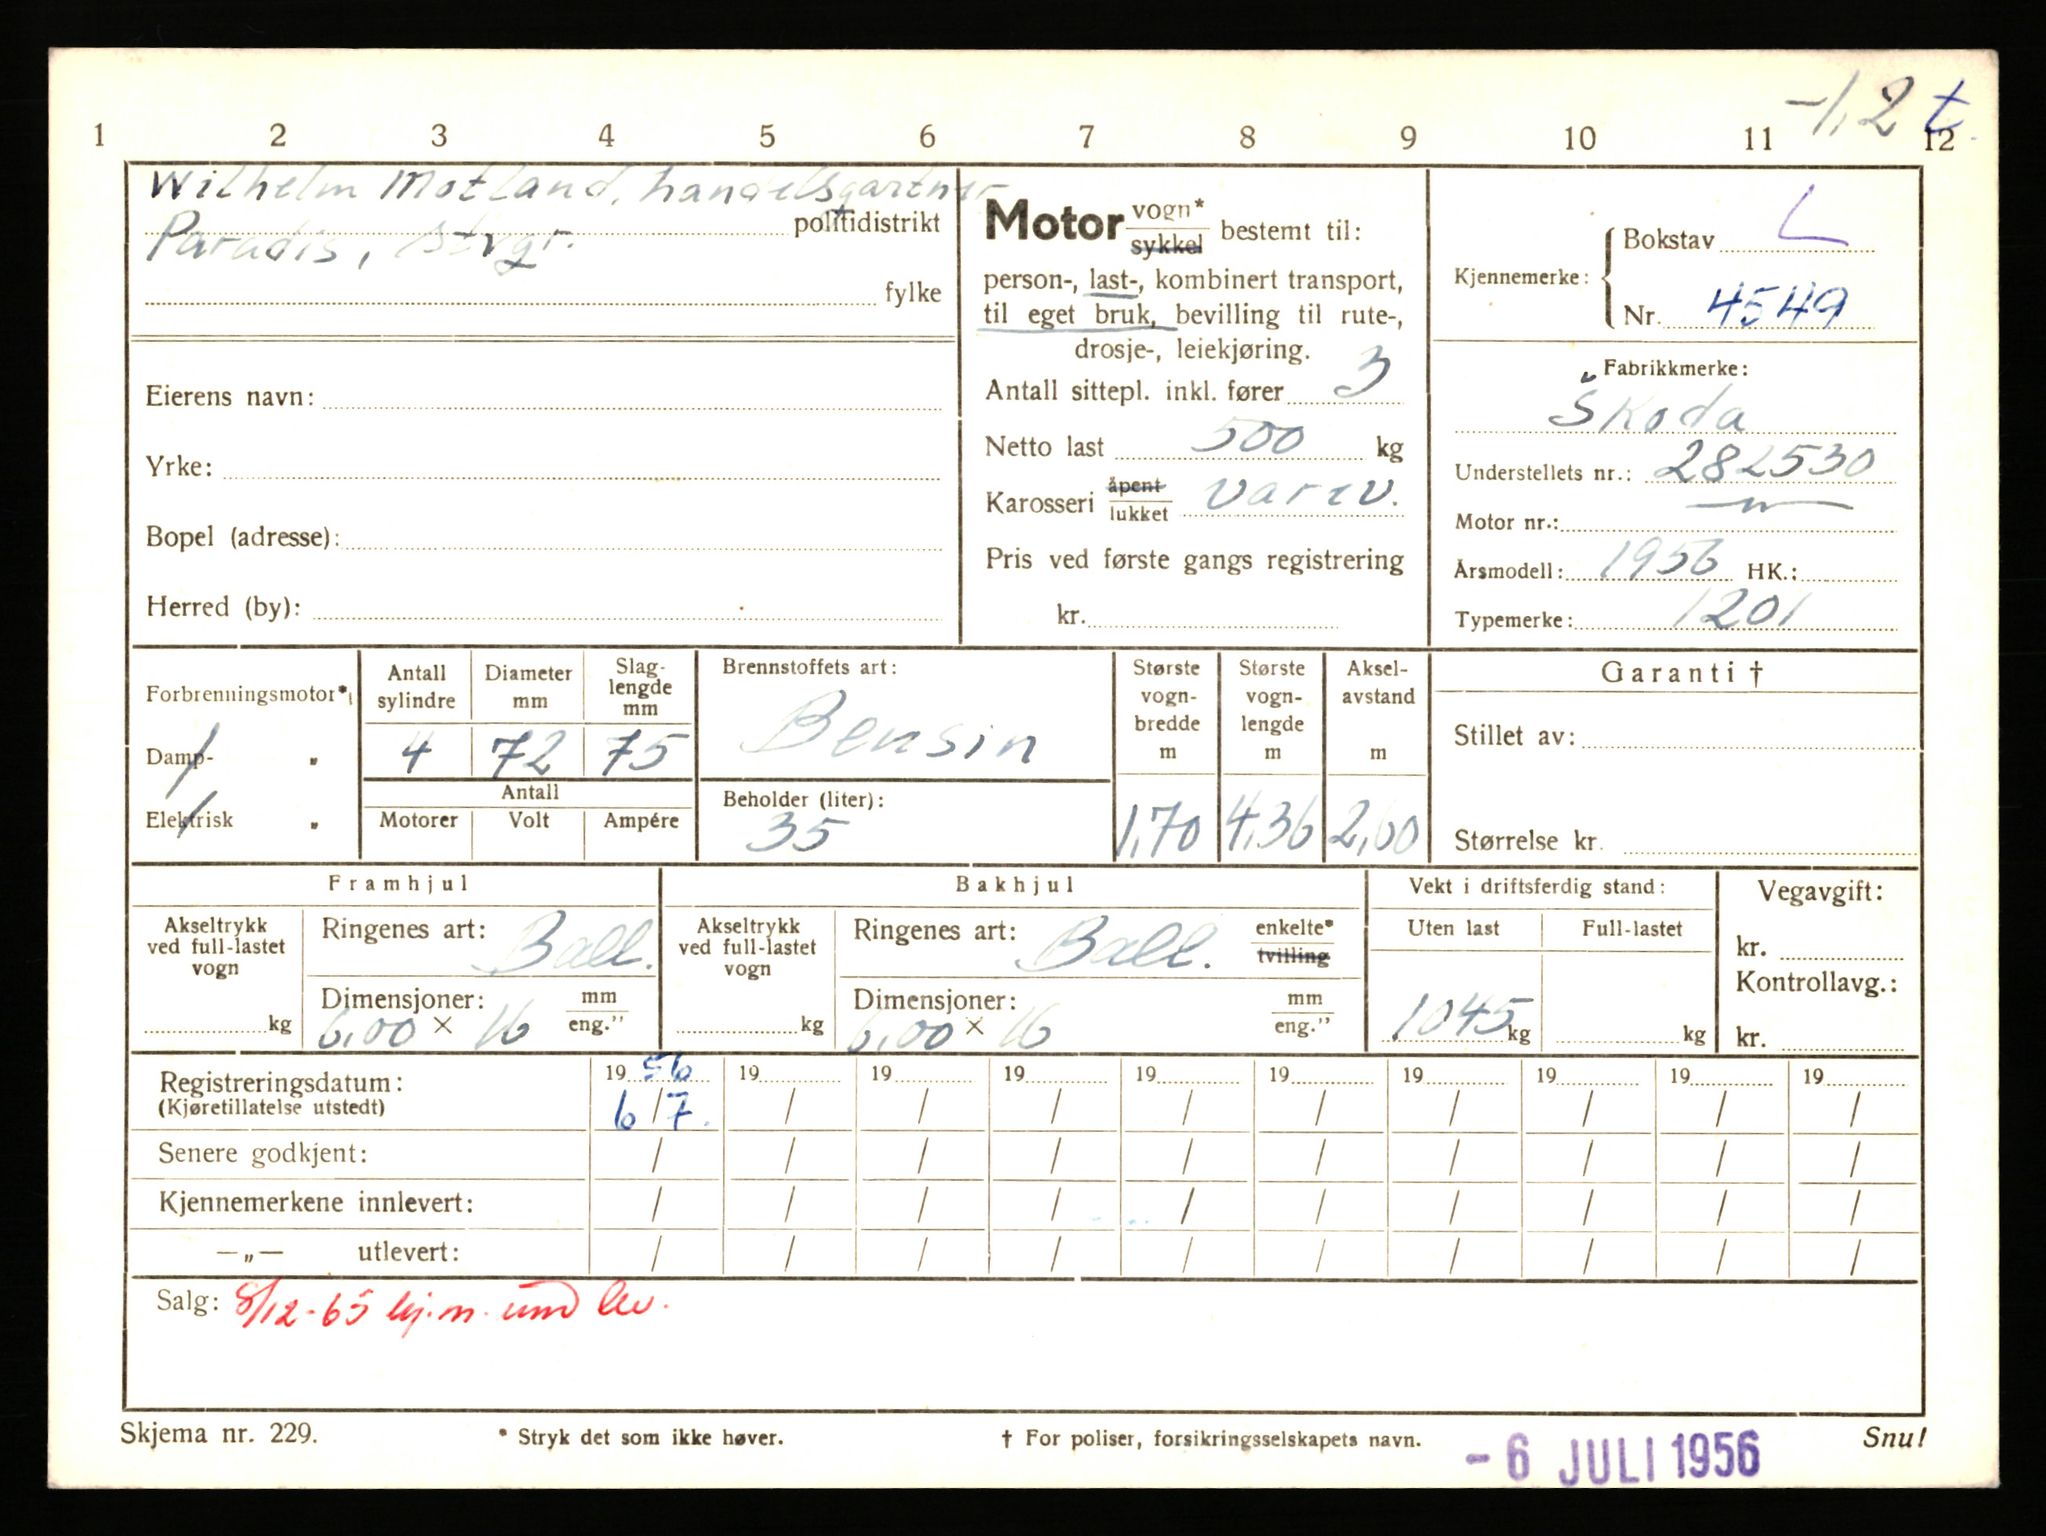 -1,2 t.
1 2 3 4 5 6 7 8 9 10 11 12
Wilhelm Motland, handelsgartner
politidistrikt
Paradis, Stvgr.
fylke
Eierens navn:
Yrke:
Bopel (adresse):
Herred (by):
Motor vogn* sykkel bestemt til:
person-, last-, kombinert transport,
til eget bruk, bevilling til rute-,
drosje-, leiekjøring.
Antall sittepl. inkl. fører 3
Netto last 500 kg
Karosseri åpent lukket varev.
Pris ved første gangs registrering
kr.
Kjennemerke: Bokstav L
Nr. 4549
Fabrikkmerke:
Škoda
Understellets nr.: 282530
Motor nr.:
Årsmodell: 1956 HK.:
Typemerke: 1201
Forbrenningsmotor*)
Damp- "
Elektrisk "
Antall sylindre Diameter mm Slag-lengde mm
4 72 75
Antall
Motorer Volt Ampére
Brennstoffets art:
Bensin
Beholder (liter):
35
Største vogn-bredde m
1,70
Største vogn-lengde m
4,36
Aksel-avstand m
2,60
Garanti †
Stillet av:
Størrelse kr.
Framhjul
Akseltrykk ved full-lastet vogn
kg
Ringenes art: Ball.
Dimensjoner: mm eng."
6,00 × 16
Bakhjul
Akseltrykk ved full-lastet vogn
kg
Ringenes art: Ball. enkelte* tvilling
Dimensjoner: mm eng."
6,00 × 16
Vekt i driftsferdig stand:
Uten last Full-lastet
1045 kg kg
Vegavgift:
kr.
Kontrollavg.:
kr.
Registreringsdatum: 19 56 19 19 19 19 19 19 19 19 19
(Kjøretillatelse utstedt) 6/7. / / / / / / / / /
Senere godkjent: / / / / / / / / / /
Kjennemerkene innlevert: / / / / / / / / / /
—„— utlevert: / / / / / / / / / /
Salg: 8/12-65 kj.m. innlev.
Skjema nr. 229. * Stryk det som ikke høver. † For poliser, forsikringsselskapets navn. Snu!
- 6 JULI 1956